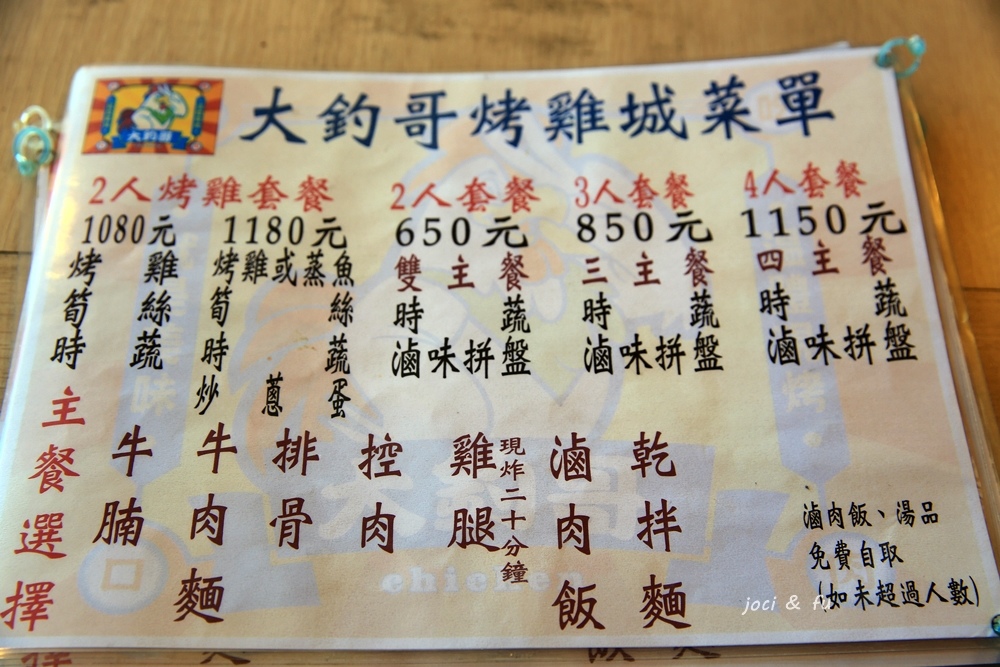 大釣哥烤雞城菜單
大釣哥
2人烤雞套餐
1080元
烤雞
筍絲
時蔬
1180元
烤雞或蒸魚
筍絲
時蔬
炒蔥蛋
2人套餐
650元
雙主餐
時蔬
滷味拼盤
3人套餐
850元
三主餐
時蔬
滷味拼盤
4人套餐
1150元
四主餐
時蔬
滷味拼盤
主餐選擇
牛腩
牛肉麵
排骨
控肉
雞腿
現炸二十分鐘
滷肉飯
乾拌麵
滷肉飯、湯品
免費自取
(如未超過人數)
chicken
joci &